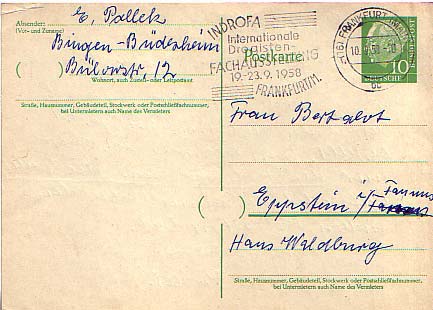 Absender:
(Vor- und Zuname)
E. Palleck
Bingen-Büdesheim
Bülowstr. 12
Wohnort, auch Zustell- oder Leitpostamt
Straße, Hausnummer, Gebäudeteil, Stockwerk oder Postschließfachnummer,
bei Untermietern auch Name des Vermieters
INDROFA
Internationale
Drogisten-
FACHAUSSTELLUNG
19.-23.9.1958
FRANKFURT/M.
(16) FRANKFURT
10
DEUTSCHE
Postkarte
Frau Bertalot
Eppstein i/Taunus
Haus Waldburg
Straße, Hausnummer, Gebäudeteil, Stockwerk oder Postschließfachnummer,
bei Untermietern auch Name des Vermieters